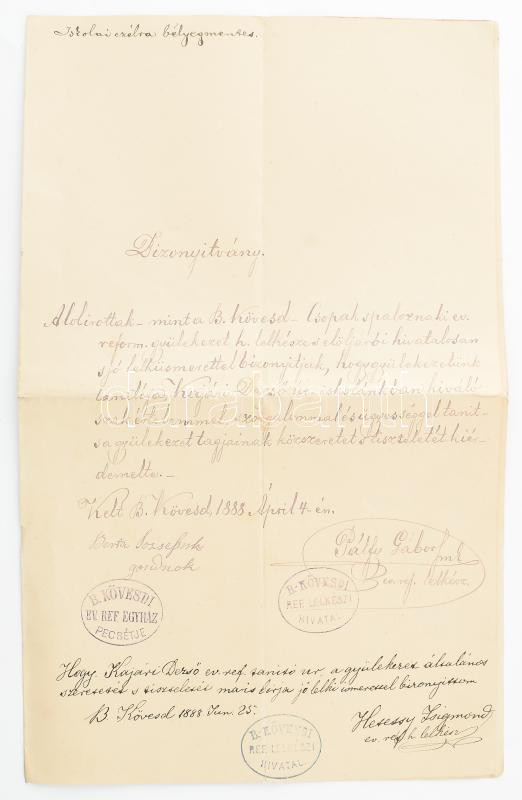 Iskolai czélra bélyegmentes.
Bizonyitvány.
Alolirottak – mint a B. Kövesd – Csopak s paloznaki ev.
reform. gyülekezet h. lelkésze s elöljárói hivatalosan
s jó lelkiismerettel bizonyitjuk, hogy gyülekezetünk
tanitója, Kajári Dezső úr, iskolánkban kiváló
szakértelemmel, szorgalommal és ügyességgel tanit-
s a gyülekezet tagjainak közszeretet s tiszteletét kiér-
demelte. –
Kelt B. Kövesd, 1888 Ápril 4-én.
Berta
gondnok
Pálfy Gábor mk
ev. ref. lelkész
B. KÖVESDI
EV. REF. EGYHÁZ
PECSÉTJE
B-KÖVESDI
REF. LELKÉSZI
HIVATAL
Hogy Kajári Dezső ev. ref. tanitó ur a gyülekezet általános
szeretetét s tiszteletét ma is birja jó lelki ismerettel bizonyitom
B. Kövesd 1888 Jun. 25.
B-KÖVESDI
REF. LELKÉSZI
HIVATAL
Hetessy Zsigmond
ev. ref. h. lelkész